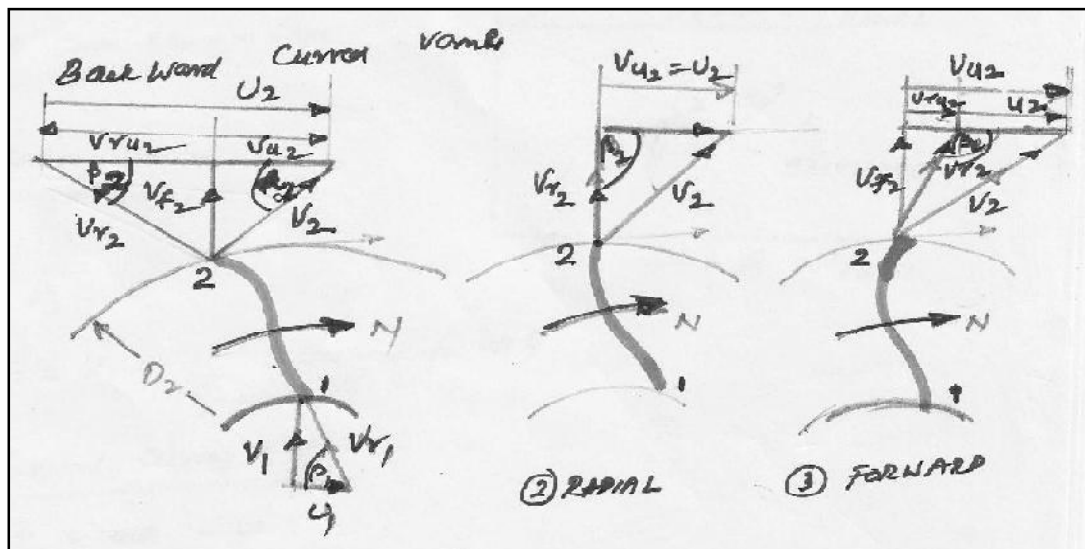 Back Ward Curved Vanes
U2
Vru2 Vu2
β2 Vf2 α2
Vr2 V2
2
N
D2
1
V1 Vr1
β1
U1
Vu2 = U2
β2
Vr2
V2
2
N
1
② RADIAL
Vu2
Vru2 U2
β2
Vf2 Vr2
V2
2
N
1
③ FORWARD